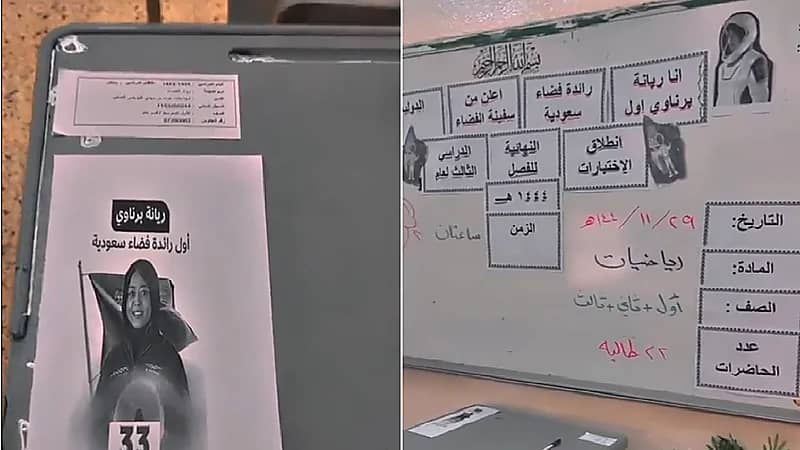 ريانة برناوي
أول رائدة فضاء سعودية
33
بسم الله الرحمن الرحيم
انا ريانة برناوي اول
رائدة فضاء سعودية
اعلن من سفينة الفضاء
الدولية
انطلاق الاختبارات
النهائية للفصل
الدراسي الثالث لعام
١٤٤٤ هـ
التاريخ:
٢٩/١١/١٤٤٤هـ
الزمن
ساعتان
المادة:
رياضيات
الصف :
أول + ثاني + ثالث
عدد الحاضرات
٢٢ طالبة